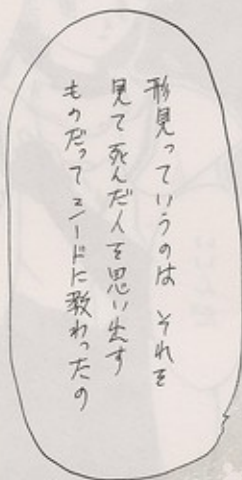 形見っていうのは それを
見て死んだ人を思い出す
ものだってユードに教わったの